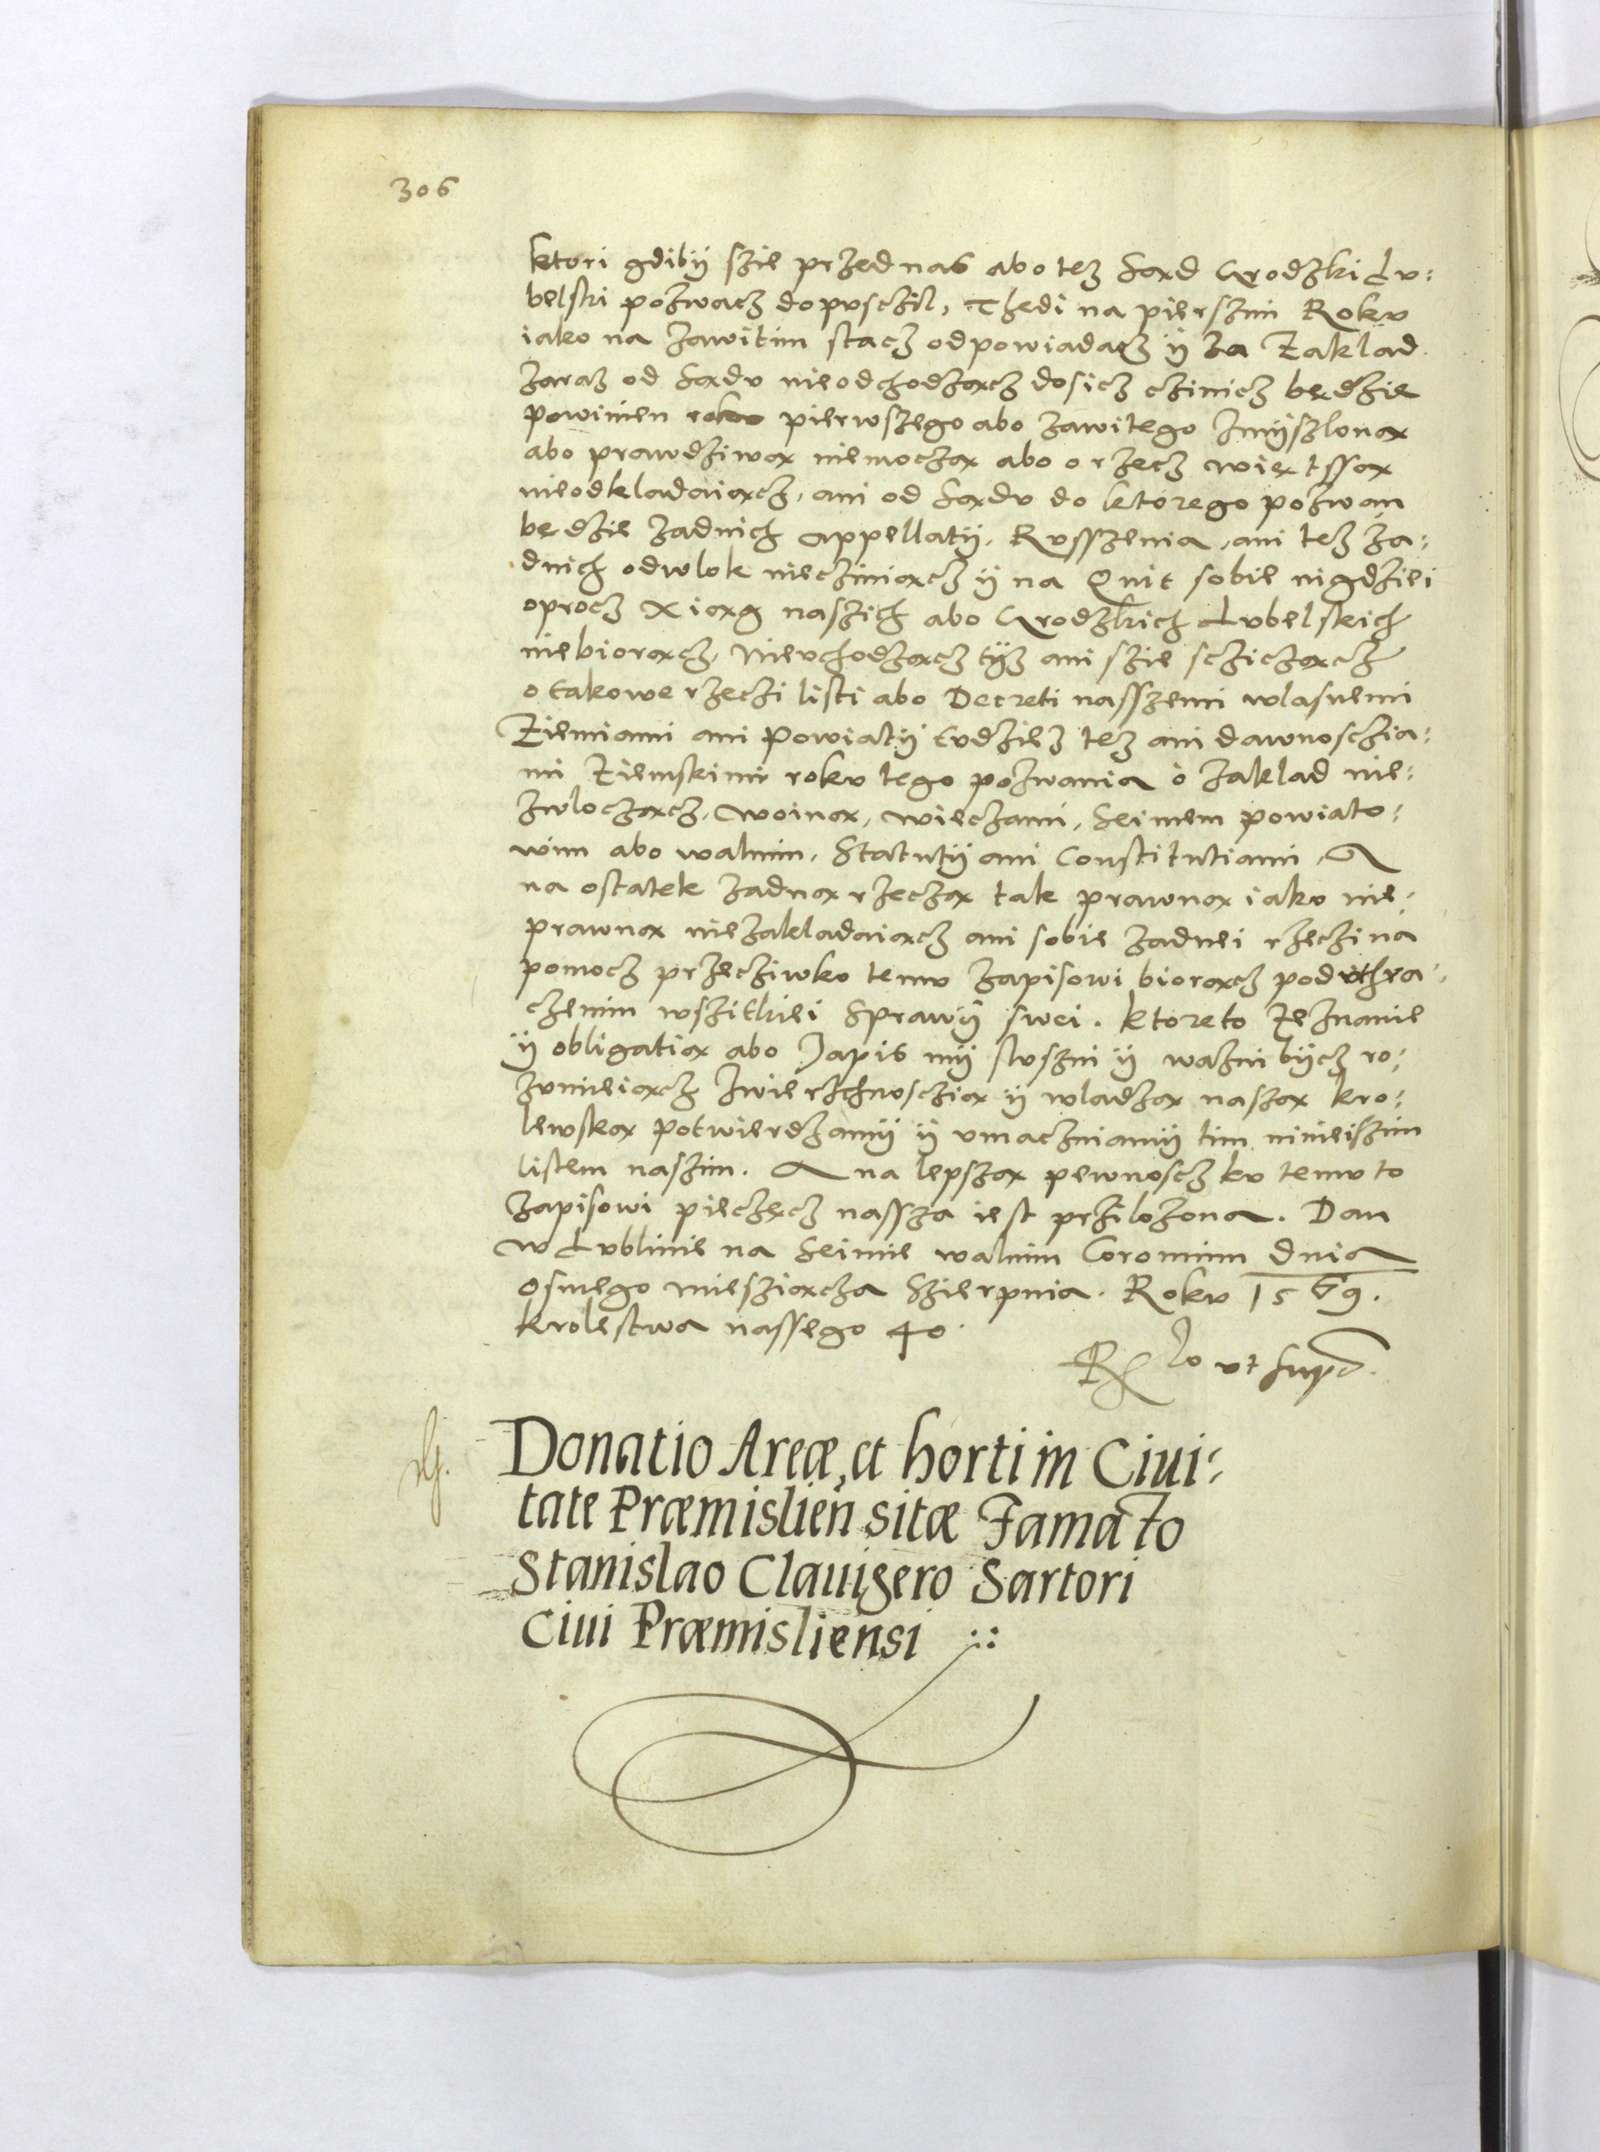 306
ktori gdibÿ szie przed nas abo tez Sąd Grodzki Lu:
belski pozwacz dopusczil, Thedi na pierszim Roku
iako na zawitim stacz odpowiadacz ÿ za Zaklad
zaraz od Sądu nieodchodzącz dosicz czinicz bedzie
powinien roku pierwszego abo zawitego zmÿszloną
abo prawdziwą niemoczą abo o rzecz więtssą
nieodkladaiącz, ani od Sądu do ktorego pozwan
będzie zadnich appellatÿ, Russzenia, ani tez za:
dnich odwlok niecziniącz ÿ na Quit sobie nigdziei
oprocz Xiąg naszich abo Grodzkich Lubelskich
niebiorącz, Nieuchodzącz tÿz ani szie scziczącz
o takowe rzeczi listi abo Decreti nasszemi wlasnemi
Ziemiami ani Powiatÿ tudziesz tez ani dawnoschia:
mi Ziemskimi roku tego pozwania o zaklad nie:
zwloczącz, woiną, wieczami, Seimem powiato:
wim abo walnim, Statutÿ ani Constitutiami, A
na ostatek zadną rzeczą tak prawną iako nie:
prawną niezakladaiącz ani sobie zadnei rzeczi na
pomocz przecziwko temu zapisowi biorącz pod uthra:
czenim wszitkiei Sprawÿ swei. Ktoreto Zeznanie
ÿ obligatią abo Zapis mÿ sluszni ÿ wazni bÿcz ro:
zumieiącz zwierzchnosczią ÿ wladzą naszą kro:
lewską potwierdzamÿ ÿ umaczniamÿ tim ninieiszim
listem naszim. A na lepszą pewnoscz ku temu to
zapisowi pieczęcz nassza iest prziłozona. Dan
w Lublinie na Seimie walnim Coronnim dnia
osmego miesziącza Szierpnia. Roku 1569.
krolestwa nassego 40.
Rlo ut supra.
Donatio Areæ, et horti in Ciui:
tate Præmislien sitæ Famato
Stanislao Clauigero Sartori
Ciui Præmisliensi